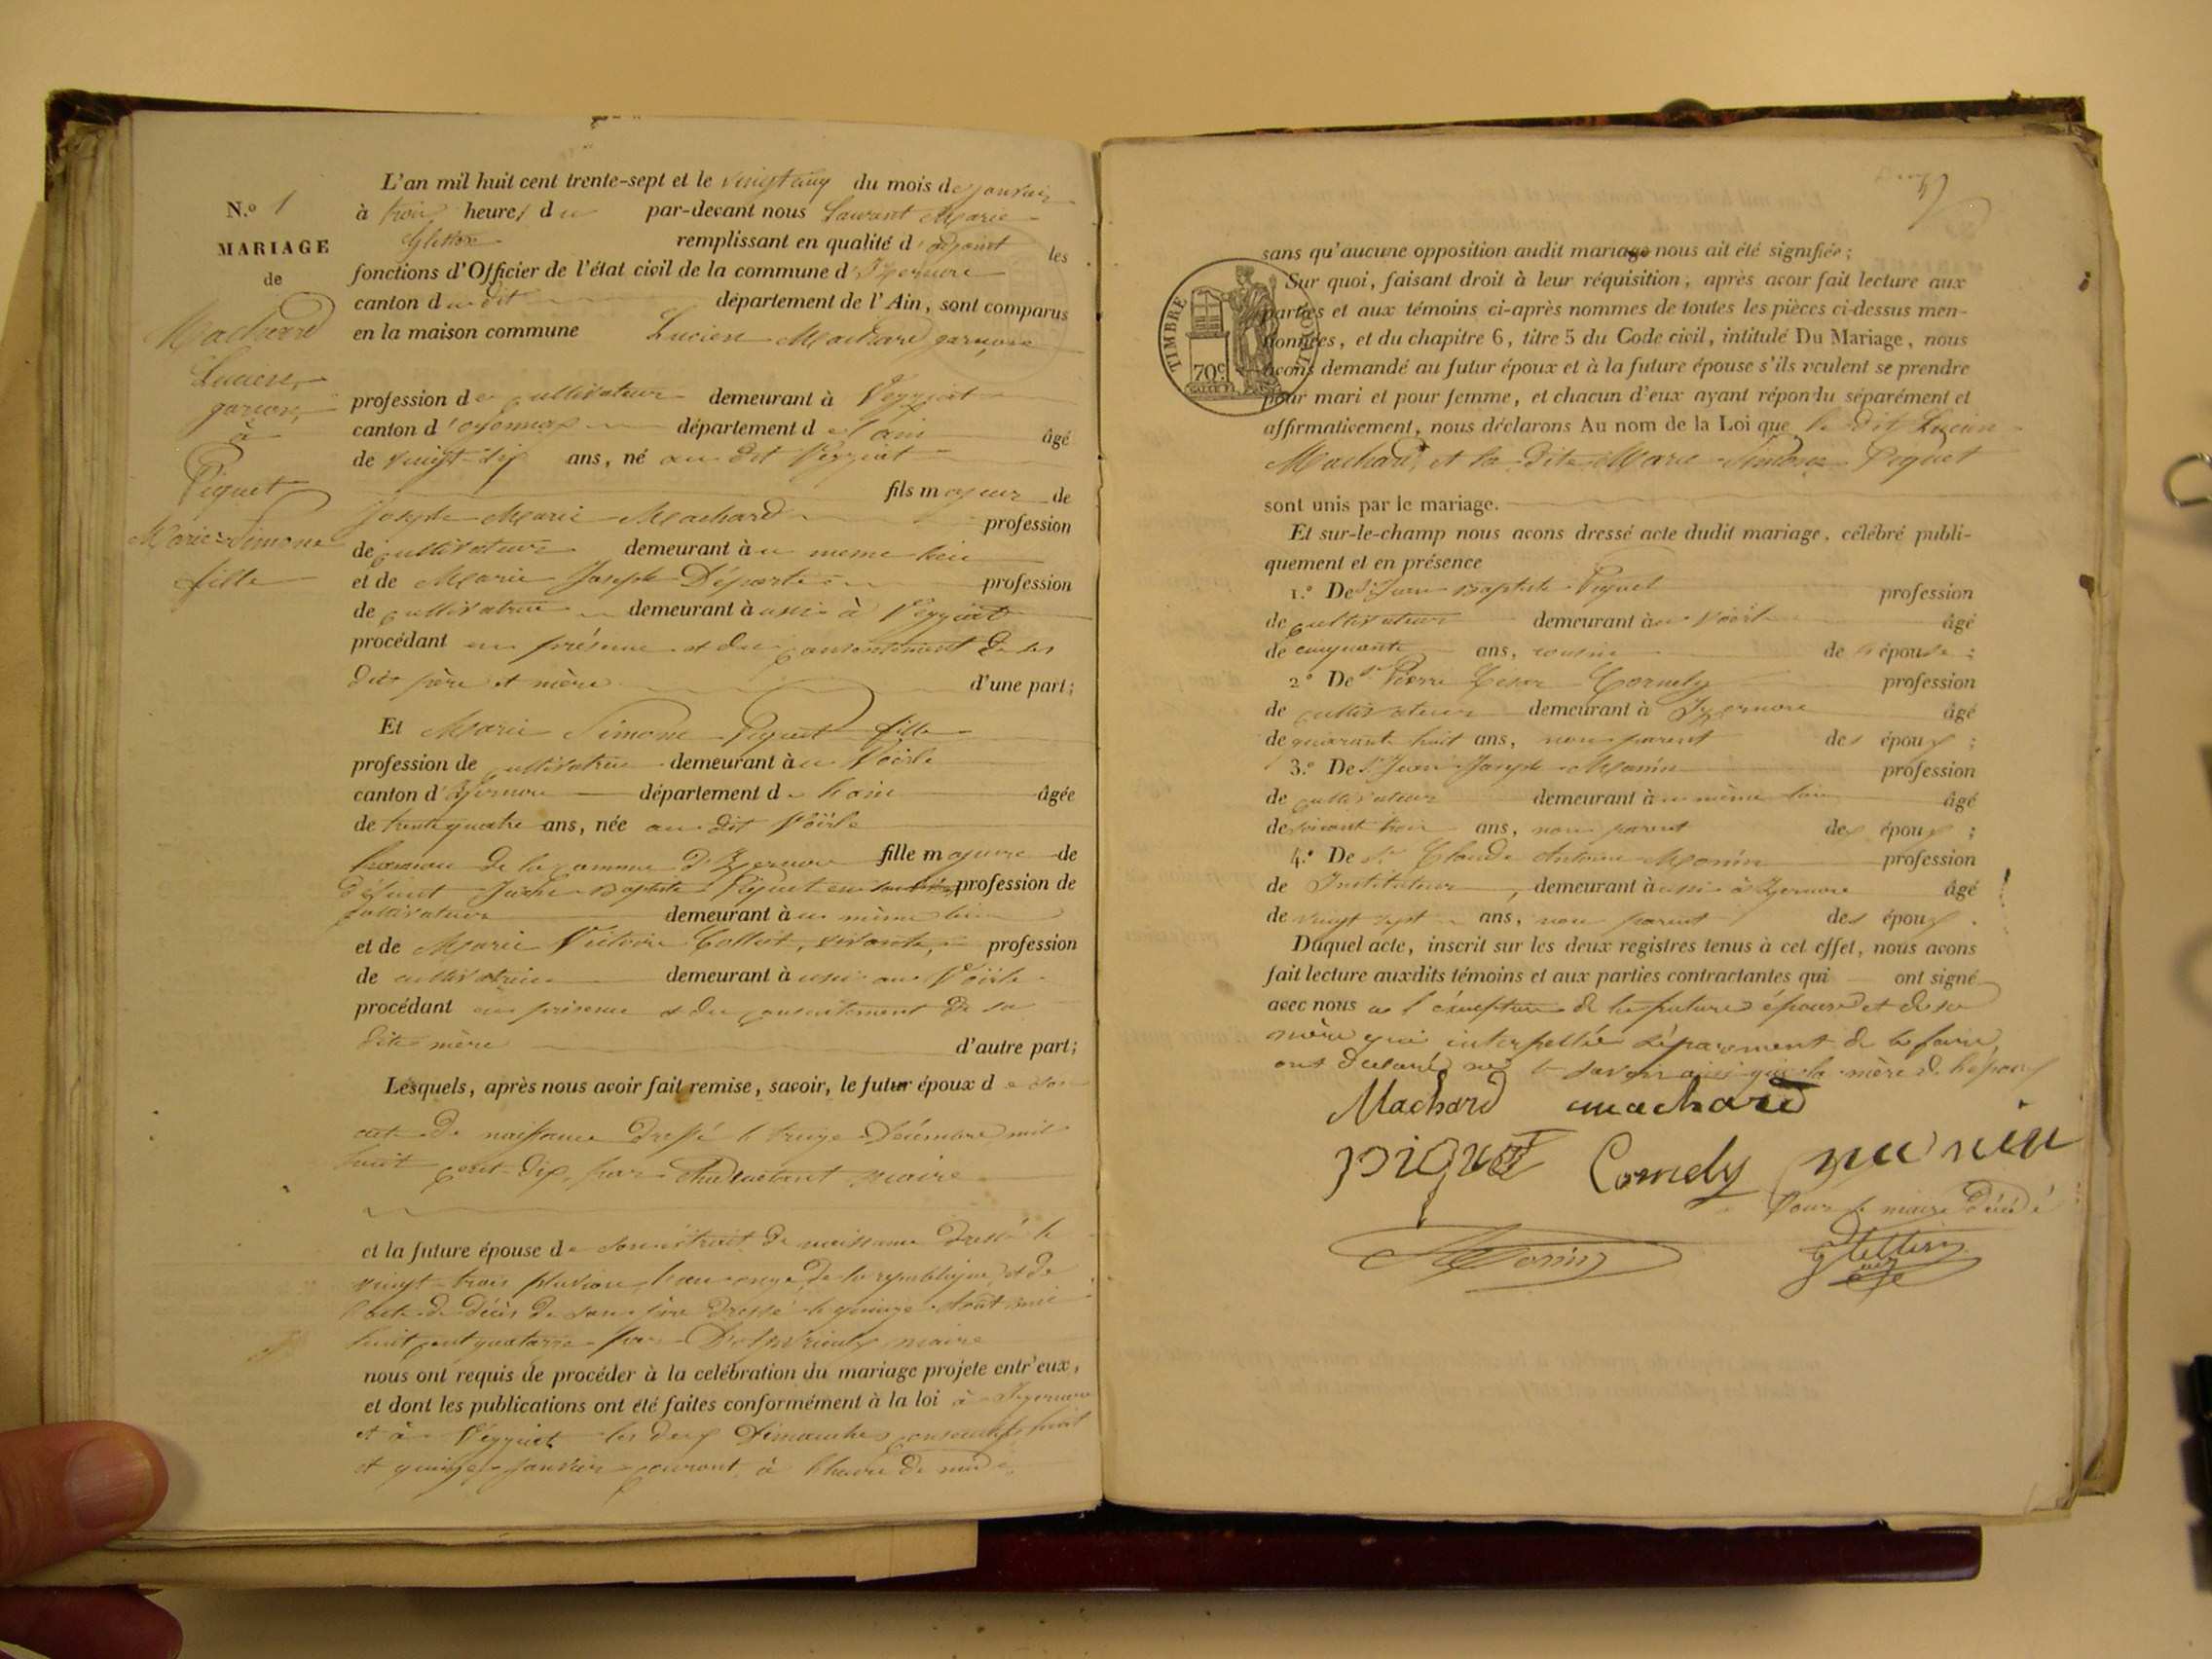 L'an mil huit cent trente-sept et le vingt cinq du mois de janvier
N.º 1
à trois heures du par-devant nous Laurant Marie
MARIAGE
remplissant en qualité d'adjoint les
de
fonctions d'Officier de l'état civil de la commune d'Izernore
canton du dit département de l'Ain, sont comparus
Machard
en la maison commune Lucien Machard garçon
Lucien,
garçon,
profession de cultivateur demeurant à Veyziat
à
canton d'oyonnax département de l'ain âgé
de vingt-six ans, né au dit Veyziat
Piquet
fils majeur de
Joseph Marie Machard profession
Marie-Simone
de cultivateur demeurant au meme lieu
fille
et de Marie Joseph profession
de cultivatrice demeurant aussi à Veyziat
procédant en présence et du consentement de ses
dits père et mère d'une part;
Et Marie Simone Piquet fille
profession de cultivatrice demeurant au Voërle
canton d'Izernore département de l'ain âgée
de trente quatre ans, née au dit Voërle
hameau de la commune d'Izernore fille majeure de
défunt Baptiste Piquet en son profession de
cultivateur demeurant au même lieu
et de Marie Victoire Collet, vivante, profession
de cultivatrice demeurant aussi au Voërle
procédant en présence et du consentement de sa
dite mère d'autre part;
Lesquels, après nous avoir fait remise, savoir, le futur époux de son
acte de naissance dressé le treize Décembre mil
huit cent-dix, par maire
et la future épouse de son extrait de naissance dressé le
vingt-trois pluviose l'an onze de la republique, et de
l'acte de décès de son père dressé le quinze août mil
huit cent quatorze par maire
nous ont requis de procéder à la celébration du mariage projete entr'eux,
et dont les publications ont été faites conformément à la loi à Izernore
et à Veyziat les deux Dimanches consecutifs huit
et quinze janvier courant, à l'heure de midi
sans qu'aucune opposition audit mariage nous ait été signifiée;
Sur quoi, faisant droit à leur réquisition, après avoir fait lecture aux
parties et aux témoins ci-après nommes de toutes les pièces ci-dessus men-
tionnées, et du chapitre 6, titre 5 du Code civil, intitulé Du Mariage, nous
TIMBRE ROYAL
70c
avons demandé au futur époux et à la future épouse s'ils veulent se prendre
pour mari et pour femme, et chacun d'eux ayant répondu séparément et
affirmativement, nous déclarons Au nom de la Loi que le dit Lucien
Machard, et la dite Marie Simone Piquet
sont unis par le mariage.
Et sur-le-champ nous avons dressé acte dudit mariage, célébré publi-
quement et en présence
1.º De Sr Jean Baptiste Piquet profession
de cultivateur demeurant au Voërle âgé
de cinquante ans, cousin de l'épouse;
2º De Sr Pierre Cesar Cornely profession
de cultivateur demeurant à Izernore âgé
de quarante huit ans, non parent des époux;
3.º De Sr Jean Joseph Monin profession
de cultivateur demeurant au même lieu âgé
de soixante trois ans, non parent des époux;
4.º De Sr Claude Antoine Monin profession
de Instituteur, demeurant aussi à Izernore âgé
de vingt sept ans, non parent des époux.
Duquel acte, inscrit sur les deux registres tenus à cet effet, nous avons
fait lecture auxdits témoins et aux parties contractantes qui ont signé
avec nous a l'exception de la future épouse et de sa
mère qui interpellée séparement de le faire,
ont declaré ne le savoir ainsi que la mère de l'époux
Machard machard
piquet Cornely monin
Pour le maire décédé
Monin